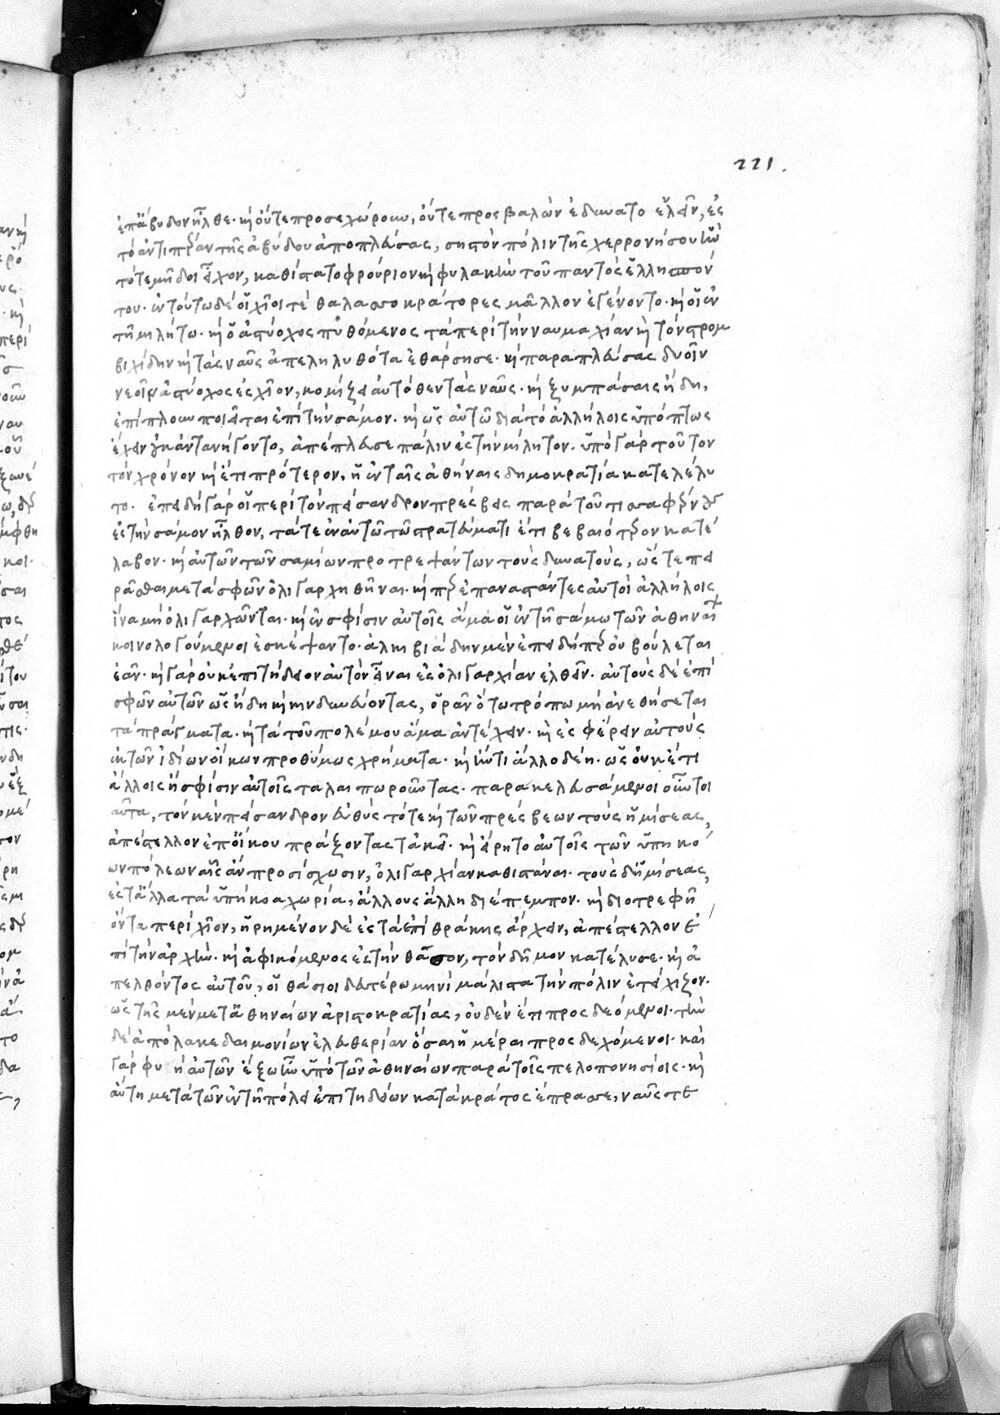 221.
ἐπ' ἄβυδον ἦλθε· καὶ οὔτε προσεχώρουν, οὔτε προσβαλὼν ἐδύνατο ἑλεῖν, ἐς
τὸ ἀντιπέραν τῆς ἀβύδου ἀποπλεύσας, σηστὸν πόλιν τῆς χερρονήσου ἣν
τότε μῆδοι εἶχον, καθίστατο φρούριον καὶ φυλακὴν τοῦ παντὸς ἑλλησπόν
του· ἐν τούτω δὲ οἱ χῖοι τὲ θαλασσοκράτορες μᾶλλον ἐγένοντο· καὶ οἱ ἐν
τῆ μιλήτω· καὶ ὁ ἀστύοχος πυθόμενος τὰ περὶ τὴν ναυμαχίαν καὶ τὸν στρομ
βιχίδην καὶ τὰς ναῦς ἀπεληλυθότα ἐθάρσησε· καὶ παραπλεύσας δυοῖν
νεοῖν ἀστύοχος ἐς χῖον, κομίζει αὐτόθεν τὰς ναῦς· καὶ ξυμπάσαις ἤδη,
ἐπίπλουν ποιεῖται ἐπὶ τὴν σάμον· καὶ ὡς αὐτῶ διὰ τὸ ἀλλήλοις ὑπόπτως
ἔχειν οὐκ ἀντανήγοντο, ἀπέπλευσε πάλιν ἐς τὴν μίλητον· ὑπὸ γὰρ τοῦτον
τὸν χρόνον καὶ ἔτι πρότερον, ἡ ἐν ταῖς ἀθήναις δημοκρατία κατελέλυ
το· ἐπειδὴ γὰρ οἱ περὶ τὸν πείσανδρον πρέσβεις παρὰ τοῦ τισσαφέρνους
ἐς τὴν σάμον ἦλθον, τά τε ἐν αὐτῶ τῶ στρατεύματι ἔτι βεβαιότερον κατέ
λαβον· καὶ αὐτῶν τῶν σαμίων προτρεψάντων τοὺς δυνατοὺς, ὥστε πει
ρᾶσθαι μετὰ σφῶν ὀλιγαρχηθῆναι· καί περ ἐπαναστάντες αὐτοὶ ἀλλήλοις
ἵνα μὴ ὀλιγαρχῶνται· καὶ ἐν σφίσιν αὐτοῖς ἅμα οἱ ἐν τῆ σάμω τῶν ἀθηναίων
κοινολογούμενοι ἐσκέψαντο· ἀλκιβιάδην μὲν ἐπειδήπερ οὐ βούλεται
ἐᾶν· καὶ γὰρ οὐκ ἐπιτήδειον αὐτὸν εἶναι ἐς ὀλιγαρχίαν ἐλθεῖν· αὐτοὺς δὲ ἐπὶ
σφῶν αὐτῶν ὡς ἤδη καὶ κινδυνεύοντας, ὁρᾶν ὅτω τρόπω μὴ ἀνεθήσεται
τὰ πράγματα· καὶ τὰ τοῦ πολέμου ἅμα ἀντέχειν· καὶ ἐσφέρειν αὐτοὺς
ἐκ τῶν ἰδίων οἴκων προθύμως χρήματα· καὶ ἤν τι ἄλλο δέη· ὡς οὐκέτι
ἄλλοις ἢ σφίσιν αὐτοῖς ταλαιπωροῦντας· παρακελευσάμενοι οὖν τοι
αῦτα, τὸν μὲν πείσανδρον εὐθὺς τότε καὶ τῶν πρέσβεων τοὺς ἡμίσεας,
ἀπέστελλον ἐπ' οἴκου πράξοντας τἀκεῖ· καὶ εἴρητο αὐτοῖς τῶν ὑπηκό
ων πόλεων αἷς ἂν προσίσχωσιν, ὀλιγαρχίαν καθιστάναι· τοὺς δ' ἡμίσεας,
ἐς τἄλλα τὰ ὑπήκοα χωρία, ἄλλους ἄλλη διέπεμπον· καὶ διοτρεφῆ
ὄντα περὶ χῖον, ἡρημένον δὲ ἐς τὰ ἐπὶ θράκης ἄρχειν, ἀπέστελλον ἐ
πὶ τὴν ἀρχήν· καὶ ἀφικόμενος ἐς τὴν θάσον, τὸν δῆμον κατέλυσε· καὶ ἀ
πελθόντος αὐτοῦ, οἱ θάσιοι δευτέρω μηνὶ μάλιστα τὴν πόλιν ἐτείχιζον·
ὡς τῆς μὲν μετ' ἀθηναίων ἀριστοκρατίας, οὐδὲν ἔτι προσδεόμενοι· τὴν
δὲ ἀπὸ λακεδαιμονίων ἐλευθερίαν ὁσαιημέραι προσδεχόμενοι· καὶ
γὰρ φυγὴ αὐτῶν ἔξω ἦν ὑπὸ τῶν ἀθηναίων παρὰ τοῖς πελοπονησίοις· καὶ
αὕτη μετὰ τῶν ἐν τῆ πόλει ἐπιτηδείων κατὰ κράτος ἔπρασσε, ναῦς τε